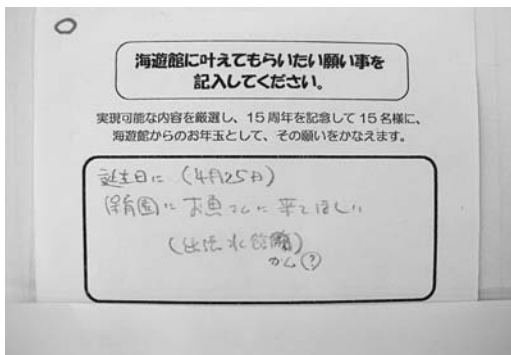 海遊館に叶えてもらいたい願い事を
記入してください。
実現可能な内容を厳選し、15周年を記念して15名様に、
海遊館からのお年玉として、その願いをかなえます。
誕生日に (4月25日)
保育園に お魚さんに 来てほしい
(出張水館)
かん?